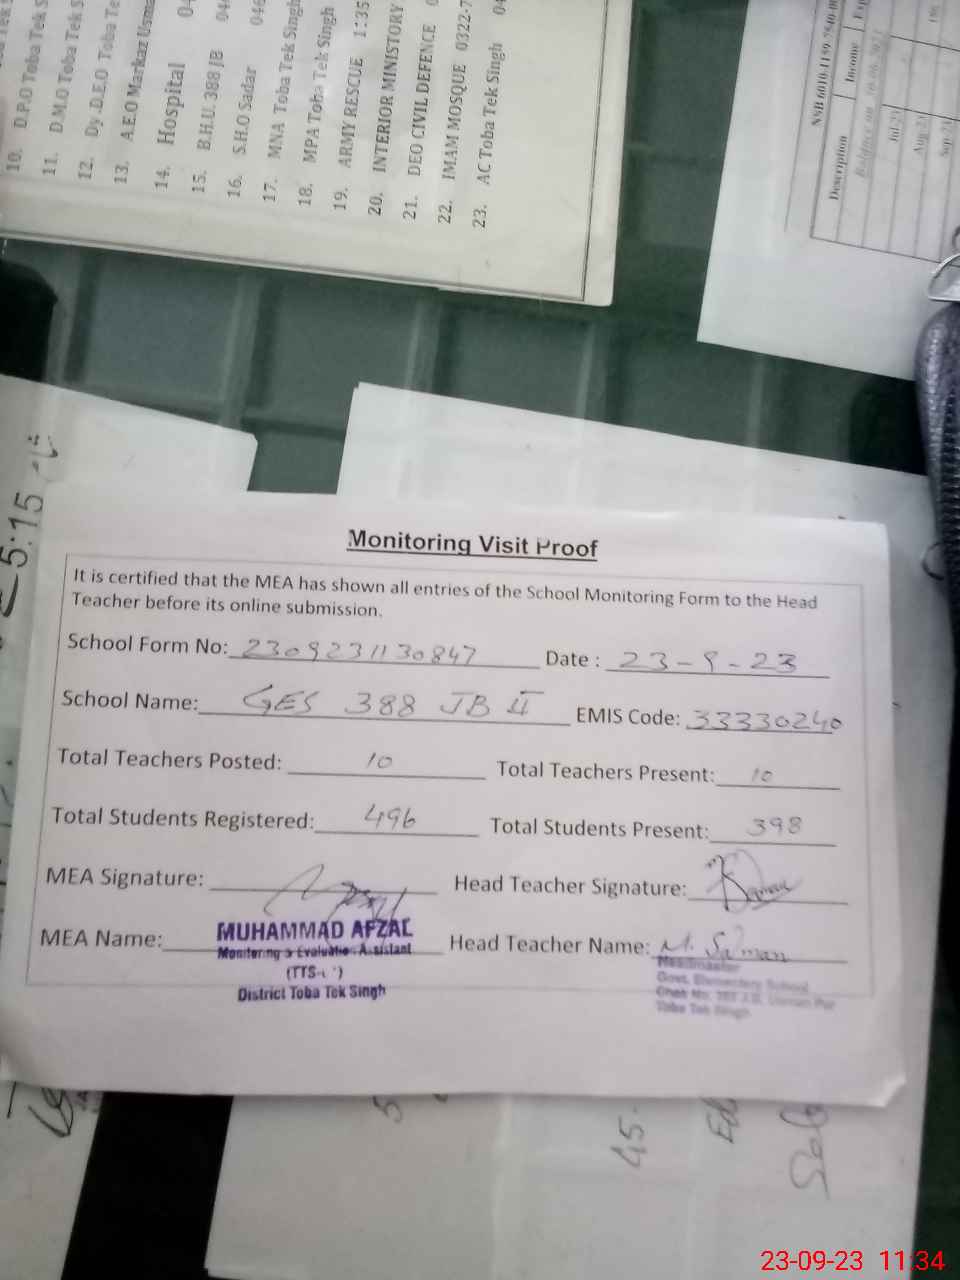 10. D.P.O Toba Tek S
11. D.M.O Toba Tek S
12. Dy.D.E.O Toba Te
13. A.E.O Markaz Usma
14. Hospital 04
15. B.H.U 388 JB 04
16. S.H.O Sadar 046
17. MNA Toba Tek Singh
18. MPA Toba Tek Singh
19. ARMY RESCUE 1:35
20. INTERIOR MINISTORY
21. DEO CIVIL DEFENCE 0
22. IMAM MOSQUE 0322-7
23. AC Toba Tek Singh 04
Description Income Exp
Jul-21
Aug-21
Sep-21
5:15
Monitoring Visit Proof
It is certified that the MEA has shown all entries of the School Monitoring Form to the Head
Teacher before its online submission.
School Form No: 2309231130847 Date : 23-9-23
School Name: GES 388 JB II EMIS Code: 33330240
Total Teachers Posted: 10 Total Teachers Present: 10
Total Students Registered: 496 Total Students Present: 398
MEA Signature: Head Teacher Signature:
MEA Name: MUHAMMAD AFZAL Head Teacher Name: M. Salman
Monitoring & Evaluation Assistant
District Toba Tek Singh
Headmaster
Govt. Elementary School
Toba Tek Singh
45.
23-09-23 11:34